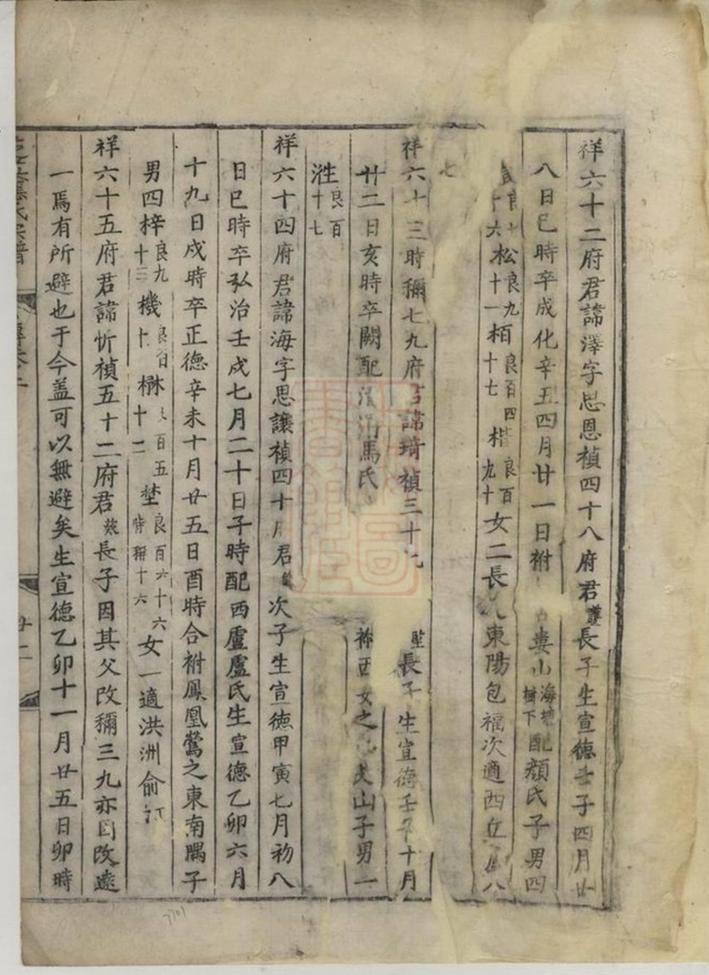 祥六十二府君諱澤字思恩禎四十八府君長子生宣德壬子四月廿
八日巳時卒成化辛丑四月廿一日祔婁山海塘樹下配顏氏子男四
松良九十一栢良百四十七楷良百九十女二長東陽包福次適西
祥六十三時稱七九府君諱琦禎三十長子生宣德壬子十月
廿二日亥時卒闕配馬氏祔西山子男一
泩良百十七
祥六十四府君諱海字思讓禎四十府君次子生宣德甲寅七月初八
日巳時卒弘治壬戌七月二十日子時配西盧盧氏生宣德乙卯六月
十九日戌時卒正德辛未十月廿五日酉時合祔鳳凰鶯之東南隅子
男四梓良九十三機楙百五十二埜良百六十六時稱十六女一適洪洲俞
祥六十五府君諱忻禎五十二府君長子因其父改稱三九亦因改遠
一焉有所避也于今盖可以無避矣生宣德乙卯十一月廿五日卯時
氏宗譜
廿二